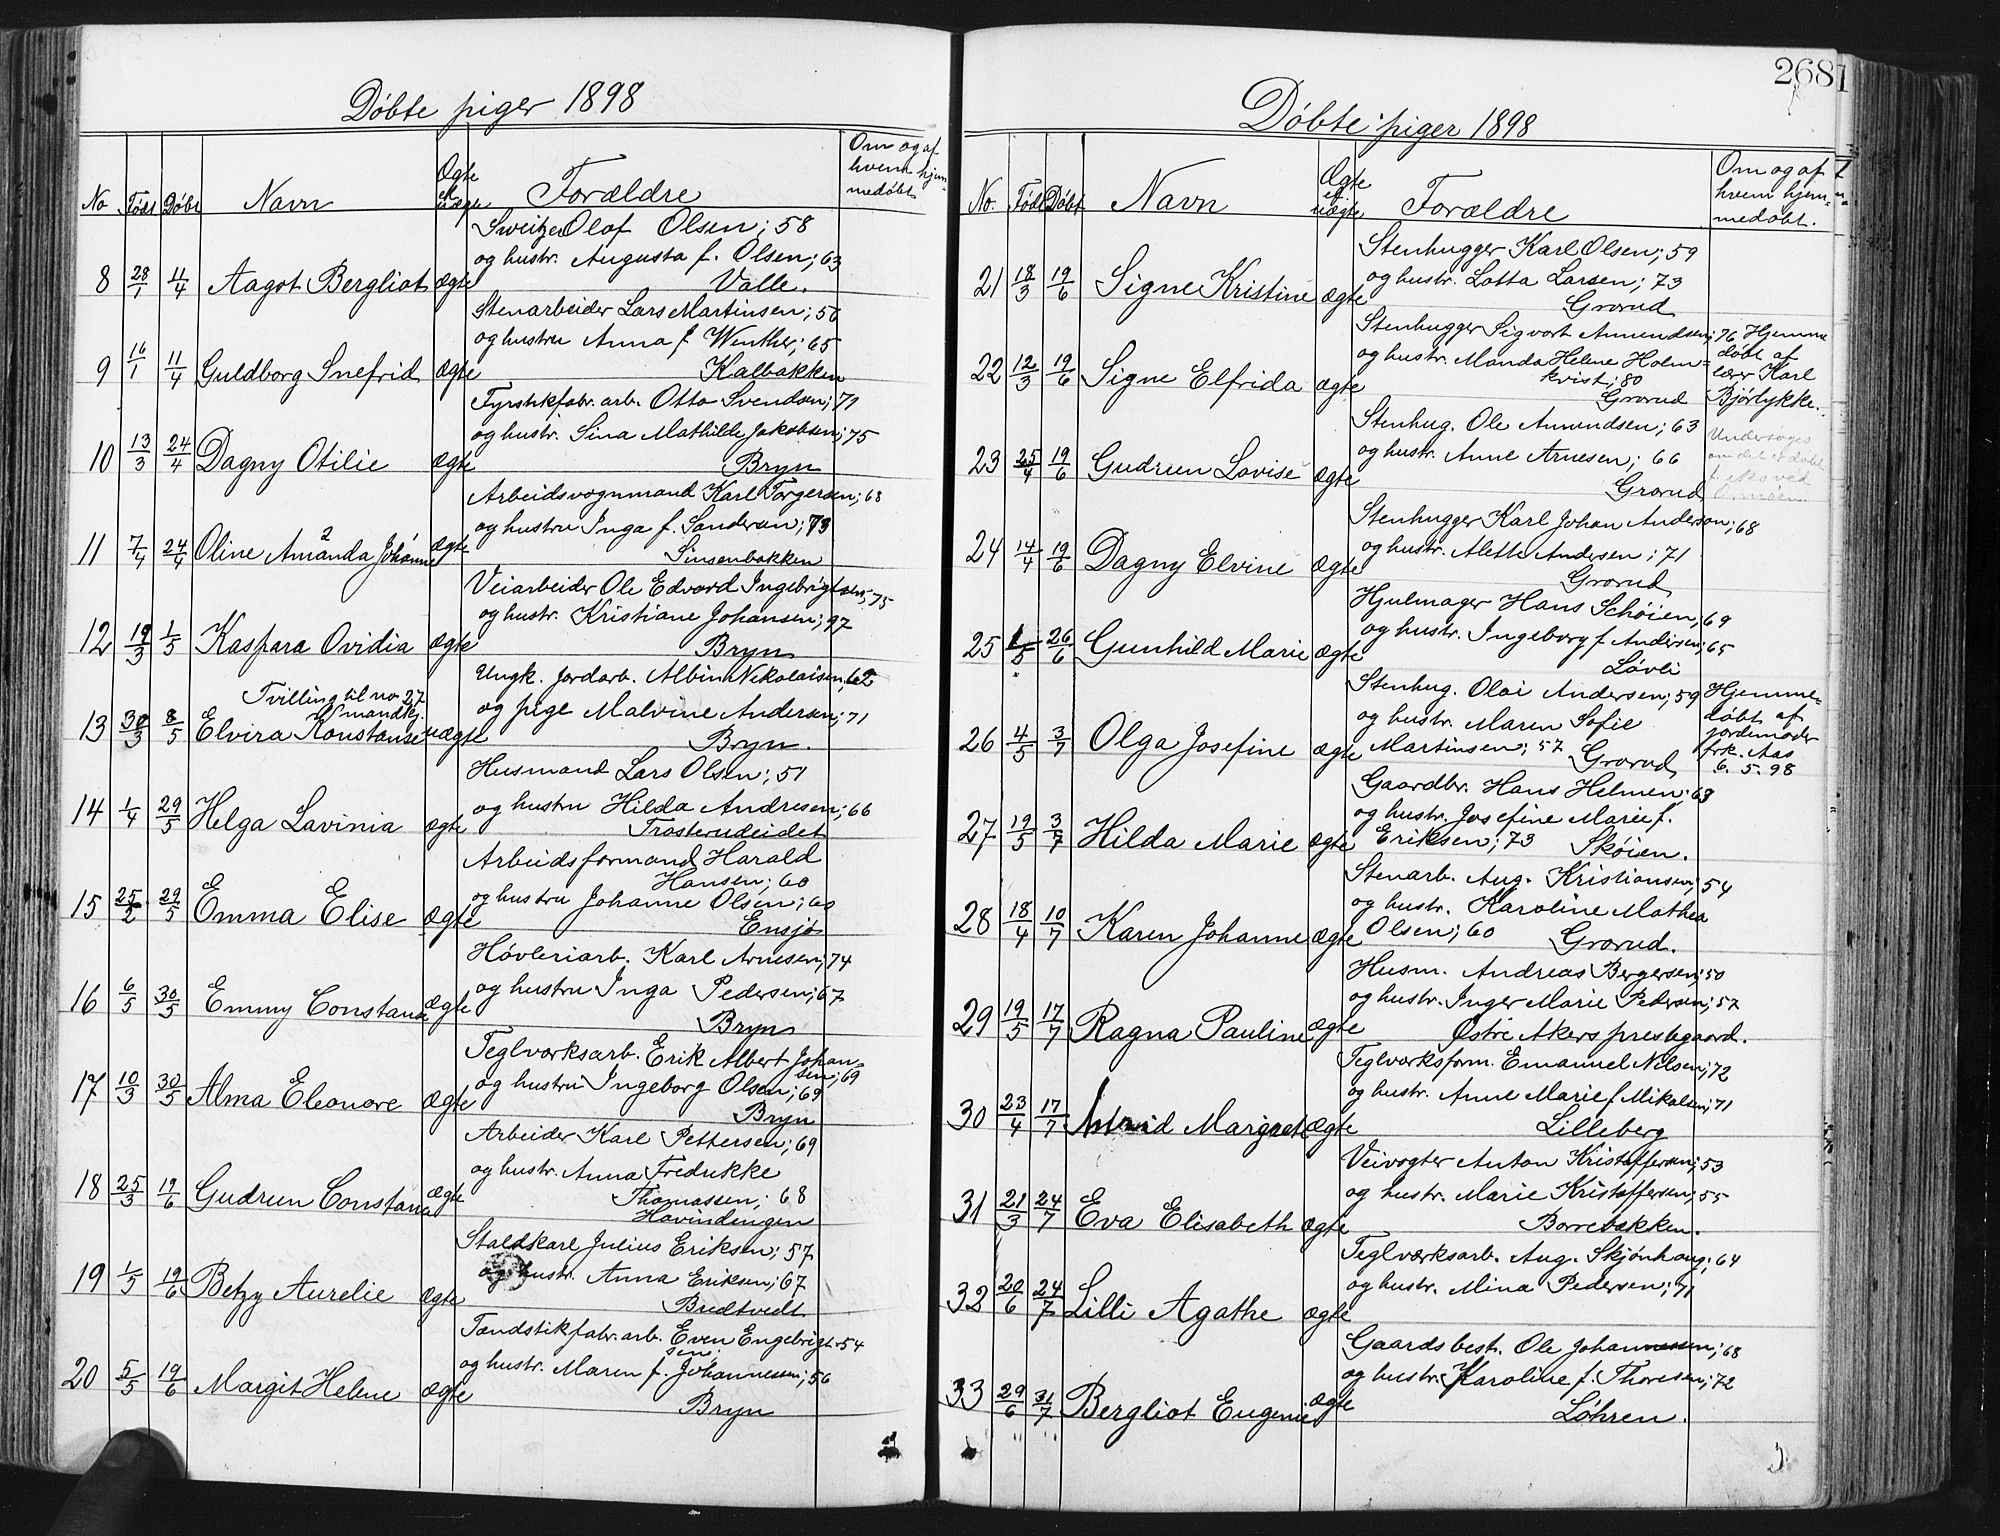 Døbte piger 1898
No Født Døbt Navn Ægte el. uægte Forældre Om og af hvem hjemmedøbt
Sweitzer Olof Olsen; 58
og hustr. Augusta f. Olsen; 63
8 28/1 11/4 Aagot Bergliot ægte Valle.
Stenarbeider Lars Martinsen; 56
og hustru Anna f. Winther; 65
9 16/1 11/4 Guldborg Snefrid ægte Kalbakken
Fyrstikfabr. arb. Otto Svendsen; 71
og hustr. Sina Mathilde Jakobsen; 75
10 13/3 24/4 Dagny Otilie ægte Bryn
Arbeidsvognmand Karl Torgersen; 68
og hustru Inga f. Sanderson; 73
11 7/4 24/4 Oline Amanda Johanne ægte Sinsenbakken
Veiarbeider Ole Edvard Ingebrigtsen; 75
og hustr. Kristiane Johansen; 97
12 19/3 1/5 Kaspara Ovidia ægte Bryn
Tvilling til no 27 mandkj.
Ungk. jordarb. Albin Nikolaisen, 62
og pige Malvine Andersen; 71
13 30/3 8/5 Elvira Konstanse uægte Bryn.
Husmand Lars Olsen; 51
og hustru Hilda Andresen; 66
14 1/4 29/5 Helga Lavinia ægte Trosterudeidet
Arbeidsformand Harald
Hansen; 60
og hustru Johanne Olsen; 60
15 25/2 29/5 Emma Elise ægte Ensjø
Høvleriarb. Karl Arnesen; 74
og hustru Inga Pedersen; 67
16 6/5 30/5 Emmy Constanse ægte Bryn
Teglværksarb. Erik Albert Johan-
sen; 69
og hustru Ingeborg Olsen; 69
17 10/3 30/5 Alma Eleonore ægte Bryn
Arbeider Karl Pettersen; 69
og hustr. Anna Fredrikke
Thomassen; 68
18 25/3 19/6 Gudrun Constanse ægte Hovindengen
Staldkarl Julius Eriksen; 57
og hustr. Anna Eriksen; 67
19 1/5 19/6 Betzy Aurelie ægte Bredtvedt
Tændstikfabr. arb. Even Engebrigt- 54
sen.
og hustr. Maren f. Johannesen; 56
20 5/5 19/6 Margit Helene ægte Bryn
268
Døbte piger 1898
No. Født Døbt Navn Ægte el. uægte Forældre Om og af hvem hjemmedøbt.
Stenhugger Karl Olsen; 59
og hustr. Lotta Larsen; 73
21 18/3 19/6 Signe Kristine ægte Grorud
Stenhugger Sigvart Amundsen; 76 Hjemme
og hustr. Manda Helene Holm- døbt af
kvist; 80 lærer Karl
22 12/3 19/6 Signe Elfrida ægte Grorud Bjørlykke.
Stenhug. Ole Amundsen; 63
og hustr. Anne Arnesen; 66 Undersøges om det er døbt
23 25/4 19/6 Gudrun Lovise ægte Grorud
Stenhugger Karl Johan Anderson; 68
og hustr. Alette Andersen; 71
24 14/4 19/6 Dagny Elvine ægte Grorud
Hjulmager Hans Schøien, 69
og hustr. Ingeborg f. Andersen; 65
25 1/5 26/6 Gunhild Marie ægte Løvli
Stenhug. Olai Andersen; 59 Hjemme-
og hustr. Maren Sofie døbt af
Martinsen; 57 jordemoder
26 4/5 3/7 Olga Josefine ægte Grorud frk. Aas
6. 5. 98
Gaardbr. Hans Helmen; 63
og hustr. Josefine Marie f.
27 19/5 3/7 Hilda Marie ægte Eriksen; 73 Skøien.
Stenarb. Aug. Kristiansen; 54
og hustr. Karoline Mathea
28 18/4 10/7 Karen Johanne ægte Olsen; 60 Grorud.
Husm. Andreas Bergersen; 50
og hustr. Inger Marie Pedersen; 57
29 19/5 17/7 Ragna Pauline ægte Østre Akers prestegaard.
Teglværksform. Emanuel Nelsen; 72
og hustr. Anne Marie f. Mikalsen; 71
30 23/4 17/7 Astrid Margrete ægte Lilleberg
Veivogter Anton Kristoffersen; 53
og hustr. Marie Kristoffersen; 55
31 21/3 24/7 Eva Elisabeth ægte Borrebakken.
Teglværksarb. Aug. Skjønhaug; 64
og hustr. Mina Pedersen; 71
32 20/6 24/7 Lilli Agathe ægte
Gaardsbest. Ole Johannessen; 68
og hustr. Karoline f. Thoresen; 72
33 29/6 31/7 Bergliot Eugenie ægte Løhren.